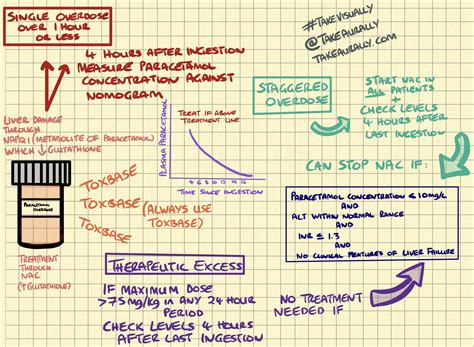 SINGLE OVERDOSE
OVER 1 HOUR
OR LESS
#TAKEVISUALLY
@TAKEAURALLY
TAKEAURALLY.COM
4 HOURS AFTER INGESTION
MEASURE PARACETAMOL
CONCENTRATION AGAINST
NOMOGRAM
STAGGERED
OVERDOSE
START NAC IN
ALL PATIENTS
+
CHECK LEVELS
4 HOURS AFTER
LAST INGESTION
LIVER DAMAGE
THROUGH
NAPQI (METABOLITE OF PARACETAMOL)
WHICH ↓ GLUTATHIONE
PLASMA PARACETAMOL
TREAT IF ABOVE
TREATMENT LINE
4 6 8 10 12 14 16
TIME SINCE INGESTION
CAN STOP NAC IF:
PARACETAMOL
OVERDOSE
TOXBASE
TOXBASE
TOXBASE
(ALWAYS USE
TOXBASE)
PARACETAMOL CONCENTRATION ≤ 10mg/L
AND
ALT WITHIN NORMAL RANGE
AND
INR ≤ 1.3
AND
NO CLINICAL FEATURES OF LIVER FAILURE
TREATMENT
THROUGH
NAC
(↑ GLUTATHIONE)
THERAPEUTIC EXCESS
IF MAXIMUM DOSE
>75mg/kg IN ANY 24 HOUR
PERIOD
CHECK LEVELS 4 HOURS
AFTER LAST INGESTION
NO TREATMENT
NEEDED IF